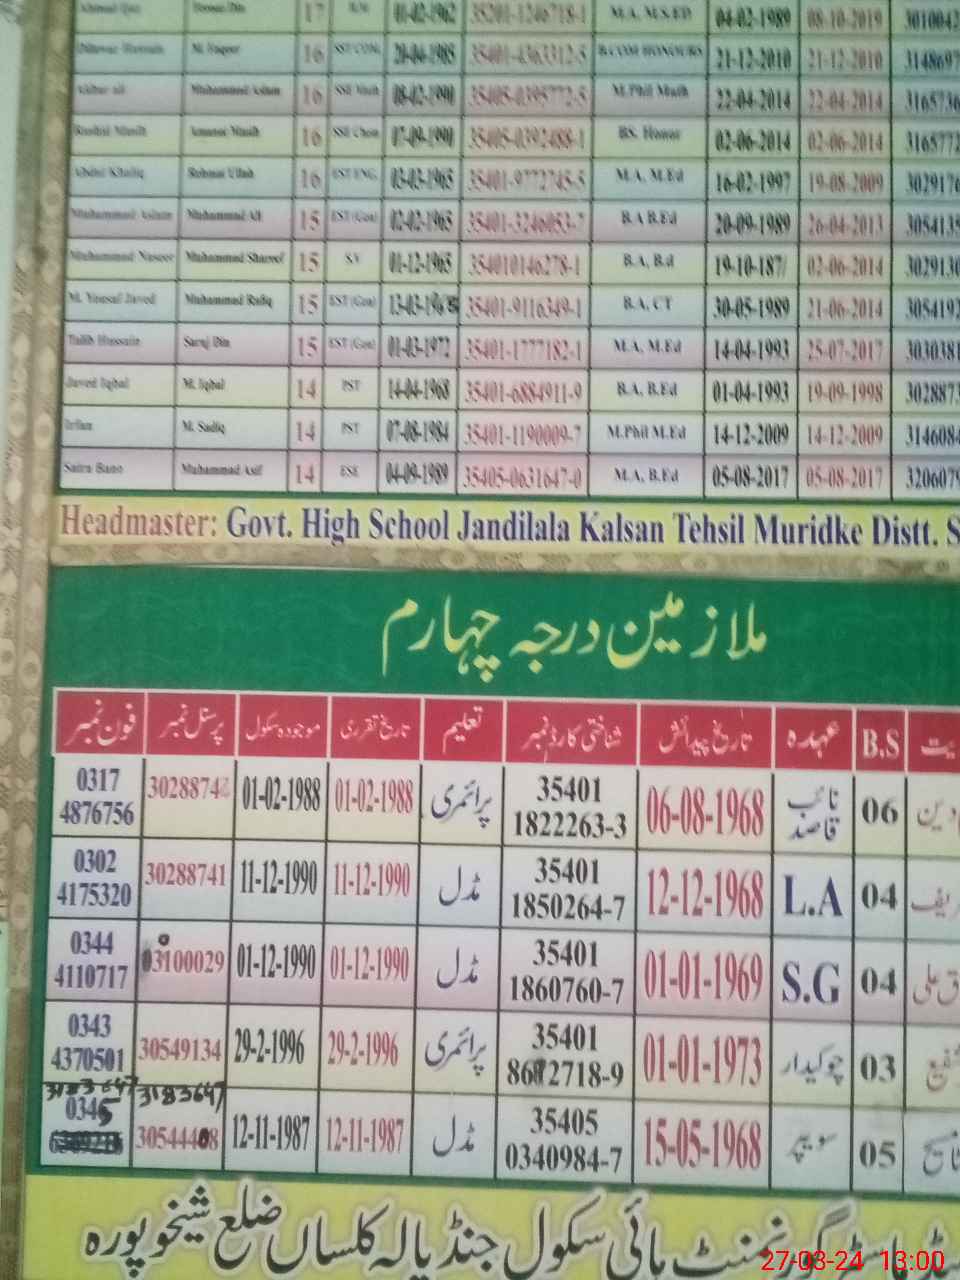 17 01-02-1962 35201-1246718-1 M.A, M.S.ED 04-02-1989 08-10-2019 3010042
16 20-04-1985 35401-4363312-5 B.COM HONOURS 21-12-2010 21-12-2010 3148697
Akbar ali Muhammad Aslam 16 SSE Math 08-02-1990 35405-0395772-5 M.Phil Math 22-04-2014 22-04-2014 3165736
16 07-09-1990 35405-0392488-1 BS. Honor 02-06-2014 02-06-2014 3165772
Abdul Khaliq Rehmat Ullah 16 EST ENG. 03-03-1965 35401-9772745-5 M.A, M.Ed 16-02-1997 19-08-2009 3029176
Muhammad Aslam Muhammad Ali 15 EST (Gen) 02-02-1965 35401-3246053-7 B.A B.Ed 20-09-1989 26-04-2013 3054135
Muhammad Naseer Muhammad Shareef 15 S.V 01-12-1965 354010146278-1 B.A, B.d 19-10-187/ 02-06-2014 3029130
M. Yousaf Javed Muhammad Rafiq 15 EST (Gen) 13-03-1965 35401-9116349-1 B.A, CT 30-05-1989 21-06-2014 3054192
Talib Hussain Saraj Din 15 EST (Gen) 01-03-1972 35401-1777182-1 M.A, M.Ed 14-04-1993 25-07-2017 3030381
Javed Iqbal M. Iqbal 14 PST 14-04-1968 35401-6884911-9 B.A, B.Ed 01-04-1993 19-09-1998 3028873
Irfan M. Sadiq 14 PST 07-08-1984 35401-1190009-7 M.Phil M.Ed 14-12-2009 14-12-2009 3146084
Saira Bano Muhammad Asif 14 ESE 04-09-1989 35405-0631647-0 M.A, B.Ed 05-08-2017 05-08-2017 3206079
Headmaster: Govt. High School Jandilala Kalsan Tehsil Muridke Distt. S
ملازمین درجہ چہارم
B.S عہدہ تاریخ پیدائش شناختی کارڈ نمبر تعلیم تاریخ تقرری موجودہ سکول پرسنل نمبر فون نمبر
دین 06 نائب قاصد 06-08-1968 35401 1822263-3 پرائمری 01-02-1988 01-02-1988 3028874 0317 4876756
04 L.A 12-12-1968 35401 1850264-7 مڈل 11-12-1990 11-12-1990 30288741 0302 4175320
04 S.G 01-01-1969 35401 1860760-7 مڈل 01-12-1990 01-12-1990 03100029 0344 4110717
03 چوکیدار 01-01-1973 35401 8672718-9 پرائمری 29-2-1996 29-2-1996 30549134 0343 4370501
3183647 3183647
05 سویپر 15-05-1968 35405 0340984-7 مڈل 12-11-1987 12-11-1987 30544408 0345
ہیڈ ماسٹر گورنمنٹ ہائی سکول جنڈیالہ کلساں ضلع شیخوپورہ
27-03-24 13:00